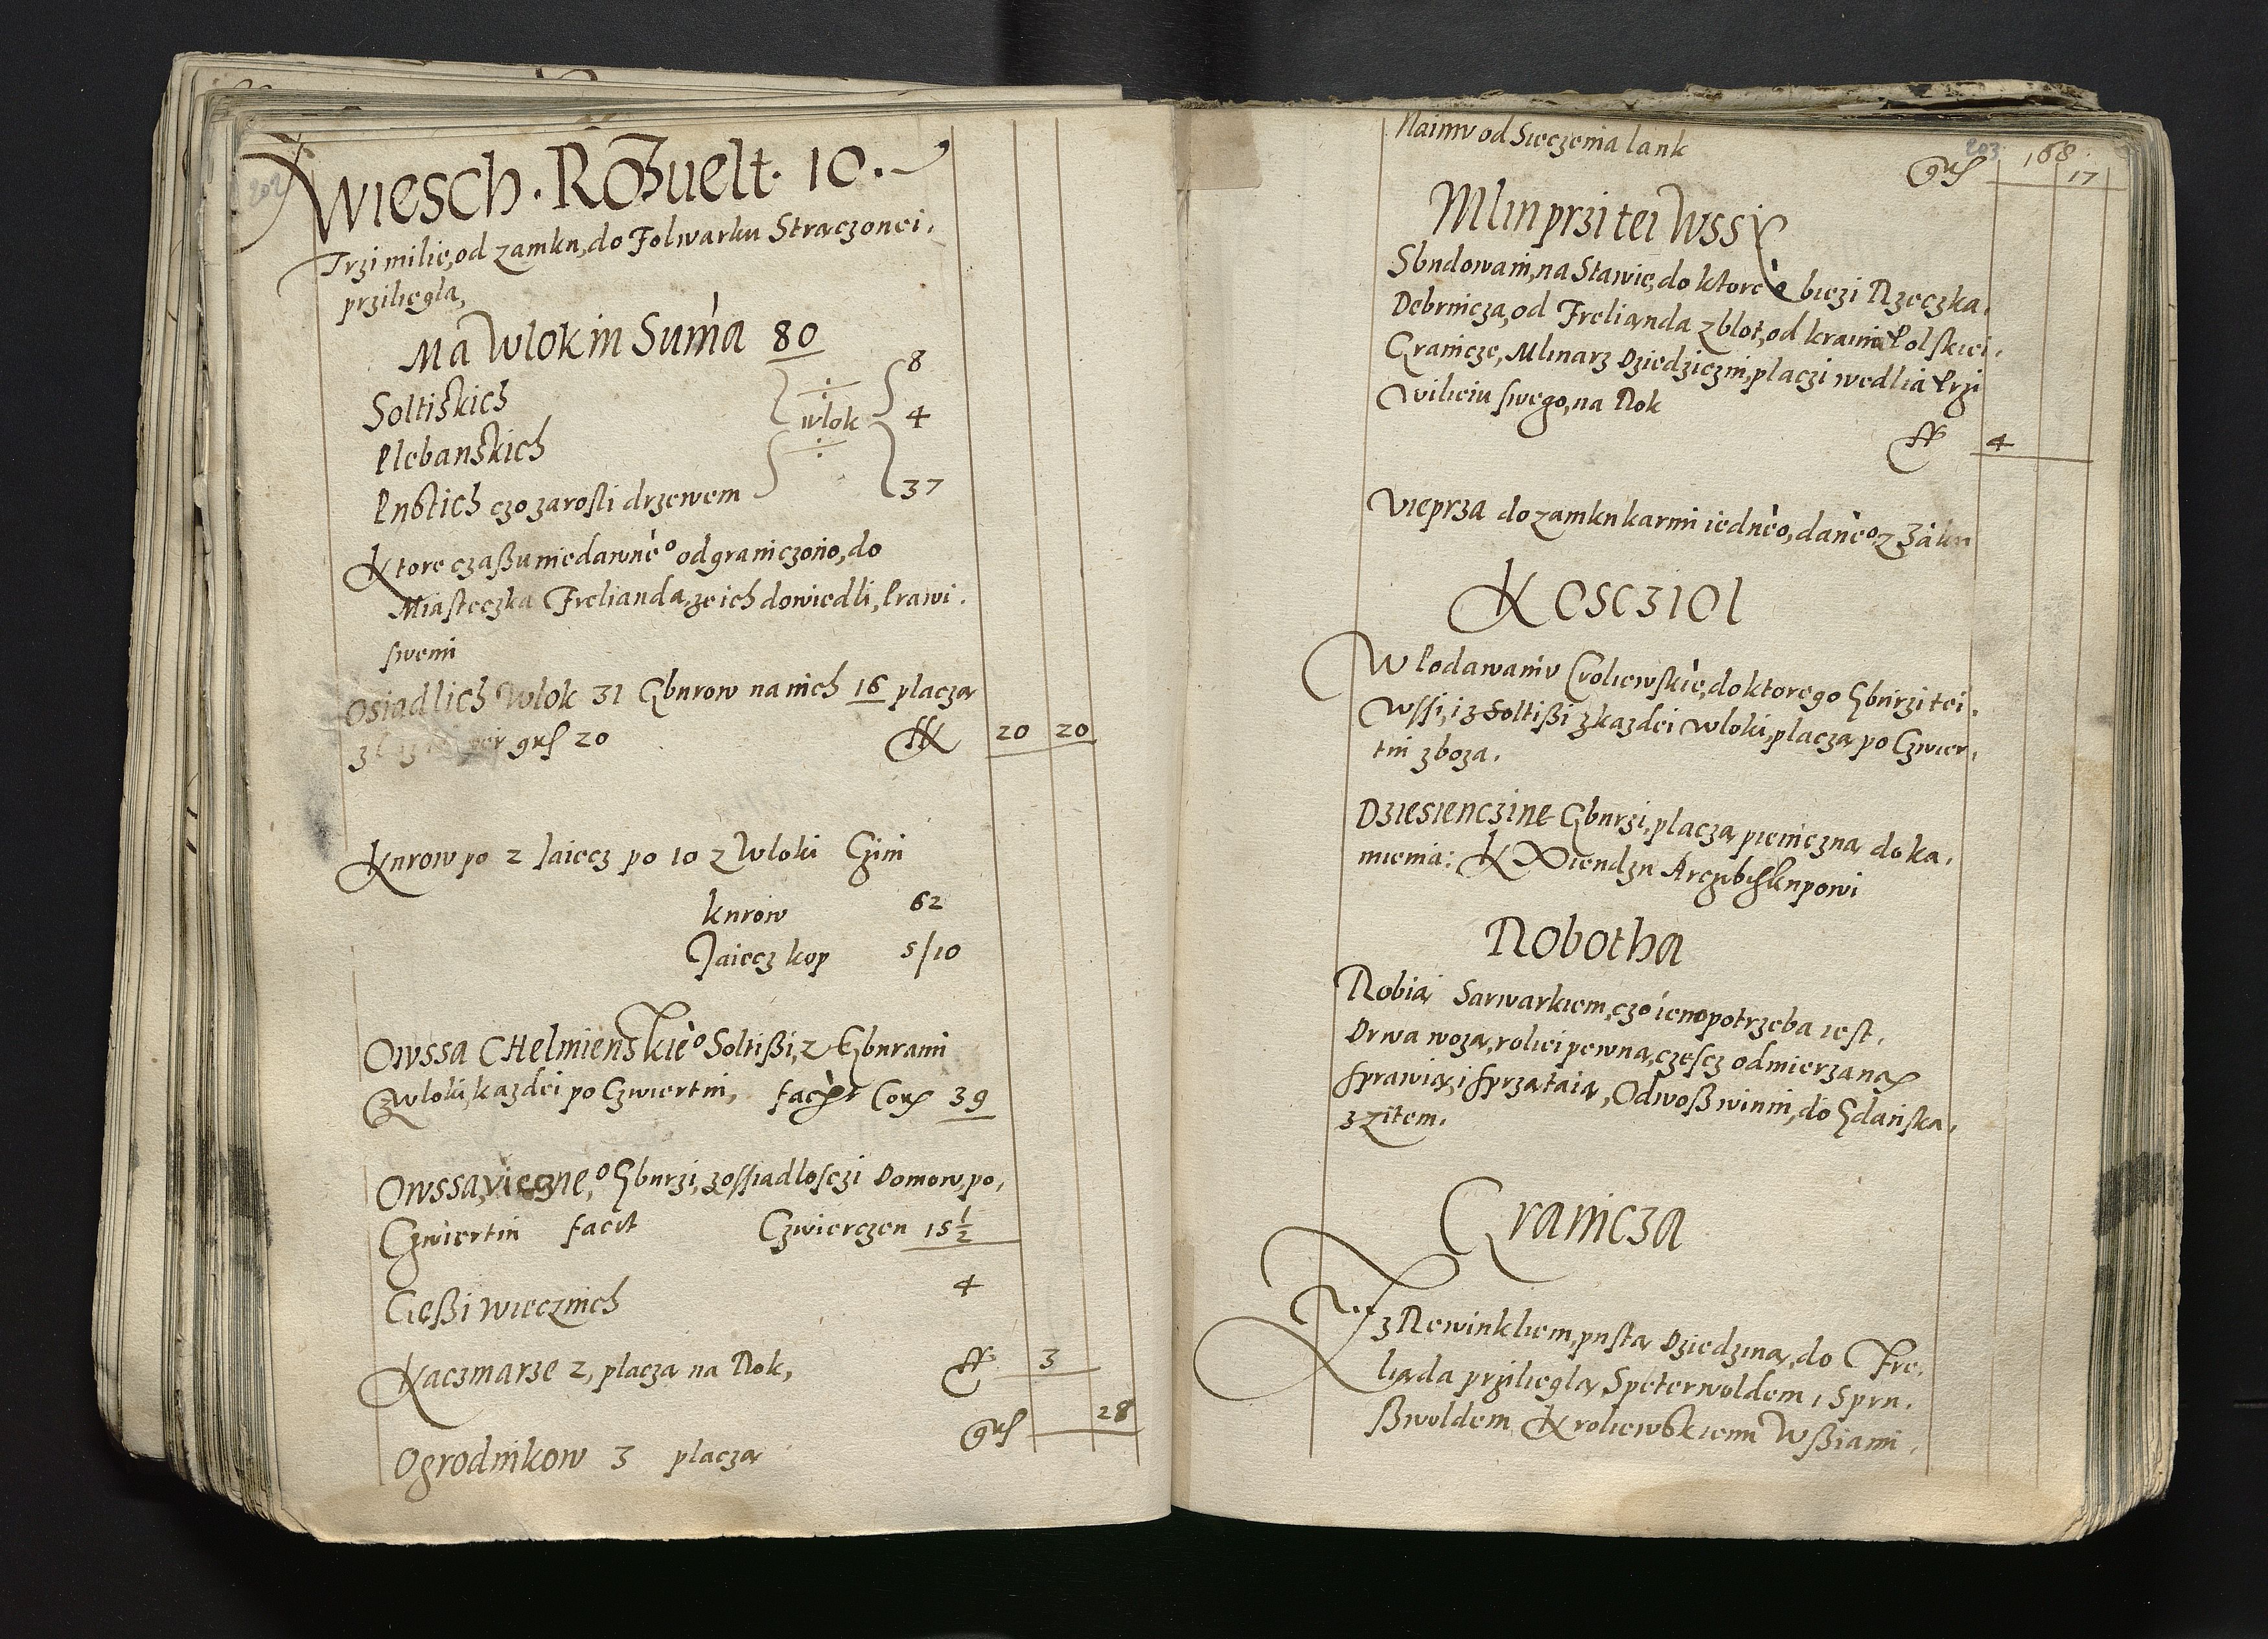 202
Wiesch. Rozuelt. 10.
Trzi milie, od zamku, do Folwarku Straczonei.
przilięgla,
Ma Wlok in Suma 80
Soltiskich 8
wlok
Plebanskich 4
Pustich czo zarosli drzewem 37
Ktore czaßu niedawne° odgraniczono, do
Miasteczka Frelianda, ze ich dowiedli, Prawi.
swemi
Osiadlich Wlok 31 Gburow na nich 16 placzą
grß 20 20 20
Kurow po 2 Jaiecz po 10 z Wloki Czini
kurow 62
Jaiecz kop 5/10
Owssa CHelmienskie° Soltißi, z Gburami
Zwloki, kazdei po Czwiertni, facit Cor 39
Owssa, vieczne,° Gburzi, z ossiadlosczi Domow, po,
Czwiertni facit Czwierczen 15 1/2
Gęßi wiecznich 4
Kaczmarze 2, placzą na Rok, 3
Ogrodnikow 3 placzą grß 28
203
168.
Naimu od Sieczenia lank
grß 17
Mlin przi tei Wssi
Sbudowani, na Stawie, do ktore° biezi Rzeczka.
Debrnicza, od Frelianda z blot, od kraini Polskiei.
Granicze, Mlinarz Dziedziczni, placzi wedlia Przi
wilieiu swego, na Rok
4
Vieprza do zamku karmi iedne°, dane° z Zamku
KOSCZIOl
W Podawaniu Croliewskie, do ktorego Gburzi tei.
Wssi, iz Soltißi z kazdei Wloki, placzą po Czwier,
tni zboza.
Dziesienczine Gburzi, placzą pieniczną do ka.
mienia: K Xiendzu Arczibiskupowi
Robotha
Robią Sarwarkiem, czo ieno potrzeba iest,
Drwa wozą, roliei pewną, czescz odmierzaną
sprawią, i sprzataią, Odwoß winni, do Gdanska,
z zitem.
Granicza
Jest z Rewinkliem, pustą Dziedziną, do Fre,
liąda przilieglą, Speterwoldem i Spru,
ßwoldem Kroliewskiemi Wßiami.